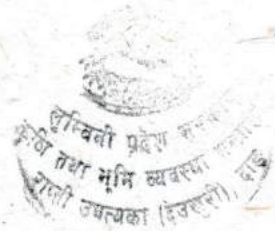 लुम्बिनी प्रदेश सरकार
कृषि तथा भूमि व्यवस्था
राप्ती उपत्यका (देउखुरी), दाङ